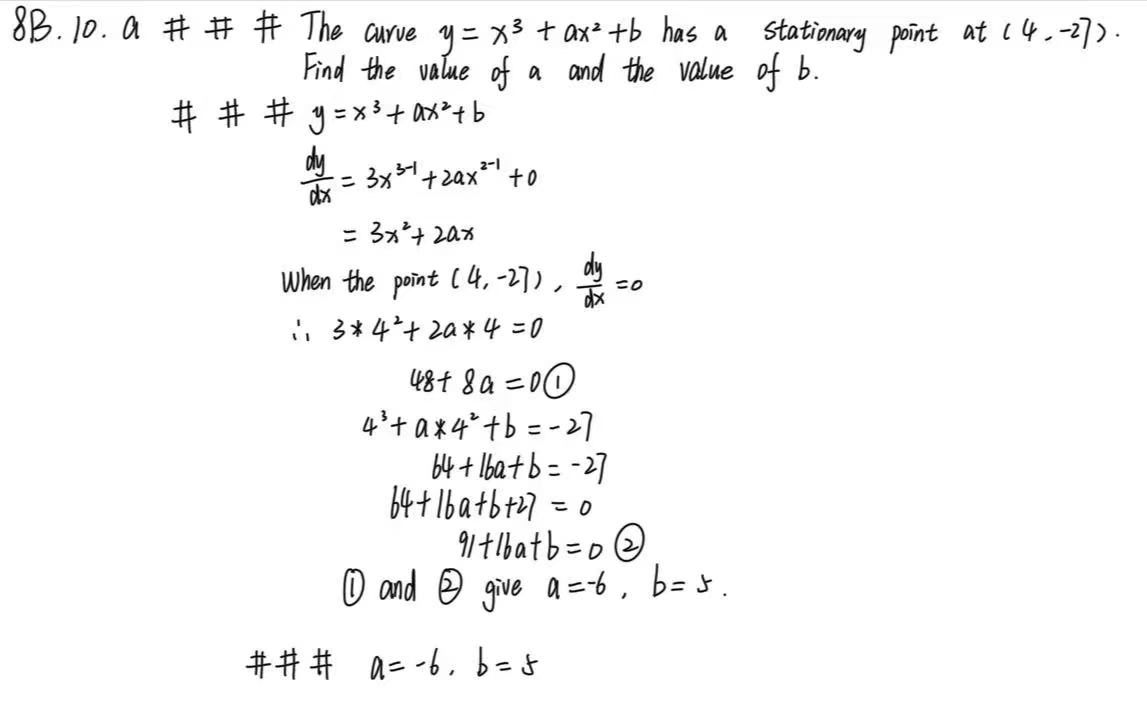 8B.10.a # # # The curve y = x³ + ax² + b has a stationary point at (4,-27).
Find the value of a and the value of b.
# # # y = x³ + ax² + b
dy/dx = 3x³⁻¹ + 2ax²⁻¹ + 0
= 3x² + 2ax
When the point (4,-27), dy/dx = 0
∴ 3*4² + 2a*4 = 0
48 + 8a = 0 ①
4³ + a*4² + b = -27
64 + 16a + b = -27
64 + 16a + b + 27 = 0
91 + 16a + b = 0 ②
① and ② give a = -6, b = 5.
### a = -6, b = 5